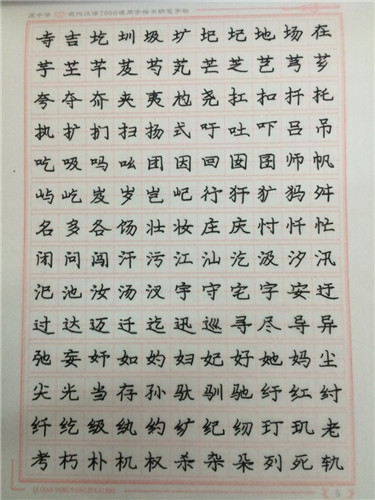 现代汉语7000通用字楷书钢笔字帖
寺吉圪圳圾圹圮圯地场在
芋芏芊芨芍芄芒芝芑芎芗
夸夺夼夹夷尥尧扛扣扦托
执扩扪扫扬式吁吐吓吕吊
吃吸吗吆团因回囡囝师帆
屿屹岌岁岂屺行犴犷犸舛
名多各饧壮妆庄庆忖忏忙
闭问闯汗污江汕汔汲汐汛
汜池汝汤汊宇守宅字安迂
过达迈迁迄迅巡寻尽导异
弛妄奸如妁妇妃好她妈尘
尖光当存孙驮驯驰纡红纣
纤纥级纨约纩纪纫玎玑老
考朽朴机权杀杂朵列死轨